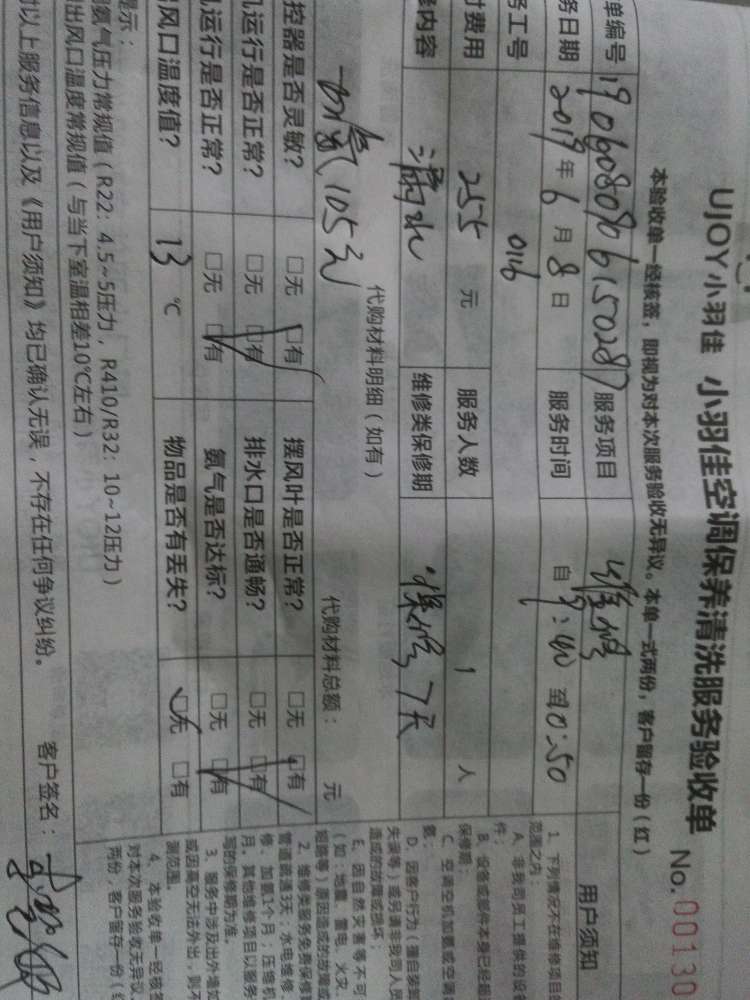 UJOY小羽佳 小羽佳空调保养清洗服务验收单 No.00130
本验收单一经核签，即视为对本次服务验收无异议。本单一式两份，客户留存一份（红）
单编号 190608090615028 服务项目 维修
务日期 2019年6月8日 服务时间 自9:40至10:50
务工号 0116
付费用 255元 服务人数 1人
修内容 漏水 维修类保修期 保修7天
代购材料明细（如有） 代购材料总额： 元
加氨105元
控器是否灵敏？ □无 □有 摆风叶是否正常？ □无 □有
机运行是否正常？ □无 □有 排水口是否通畅？ □无 □有
机运行是否正常？ □无 □有 氨气是否达标？ □无 □有
出风口温度值？ 13℃ 物品是否有丢失？ □无 □有
提示：
氨气压力常规值（R22：4.5~5压力，R410/R32：10~12压力）
出风口温度常规值（与当下室温相差10℃左右）
以上服务信息以及《用户须知》均已确认无误，不存在任何争议纠纷。 客户签名：
用户须知
1、下列情况不在维修项目
范围之内：
A、非我司员工提供的设备
件；
B、设备或部件本身已经超
保修期；
C、空调空机加氨或空调
氨；
D、因客户行为（擅自装
失误等）或另请非我司人员
造成的故障或损坏；
E、因自然灾害等不可
（如：地震、雷电、火灾、
短路等）原因造成的故障或
2、维修类服务免费保修
管道疏通3天；水电维修
修、加氨1个月；压缩机
月。其他维修项目以服务
写的保修期为准。
3、服务中涉及出外墙如
或因高空无法外出，则不
测范围。
4、本验收单一经核签
对本次服务验收无异议。
两份，客户留存一份（红